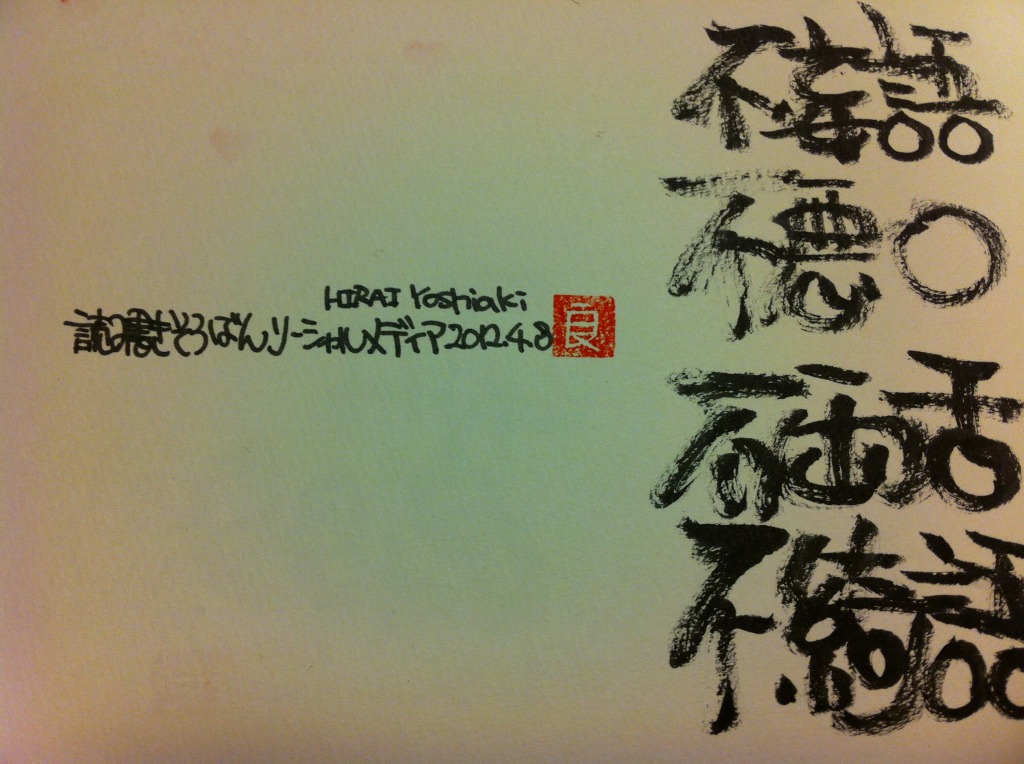 不妄語
不悪口
不両舌
不綺語
HIRAI Yoshiaki
読み書きそろばんソーシャルメディア2012.4.8
良